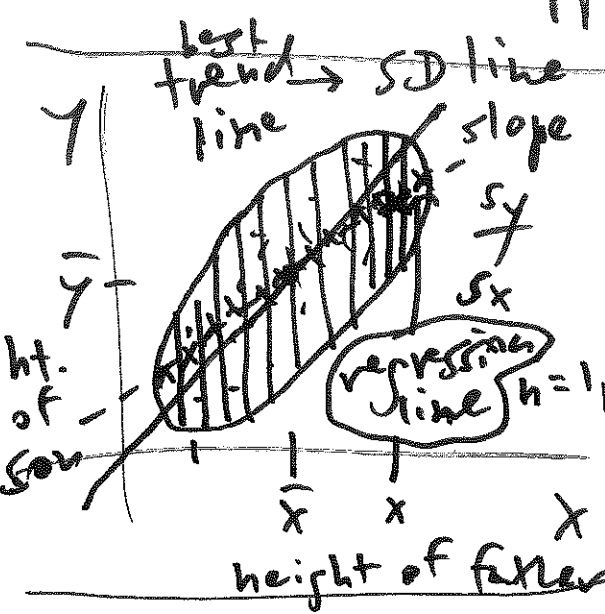 best
trend → SD line
line
slope
sy
sx
Y
ȳ
ht.
of
son
regression
line
n = 1,
x̄
x
X
height of father